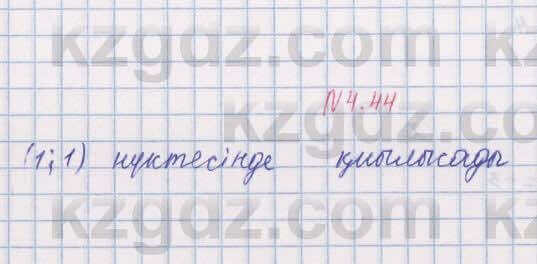 kzgdz.com
N 4.44
kzgdz.com
(1; 1) нүктесінде қиылысады
kzgdz.com